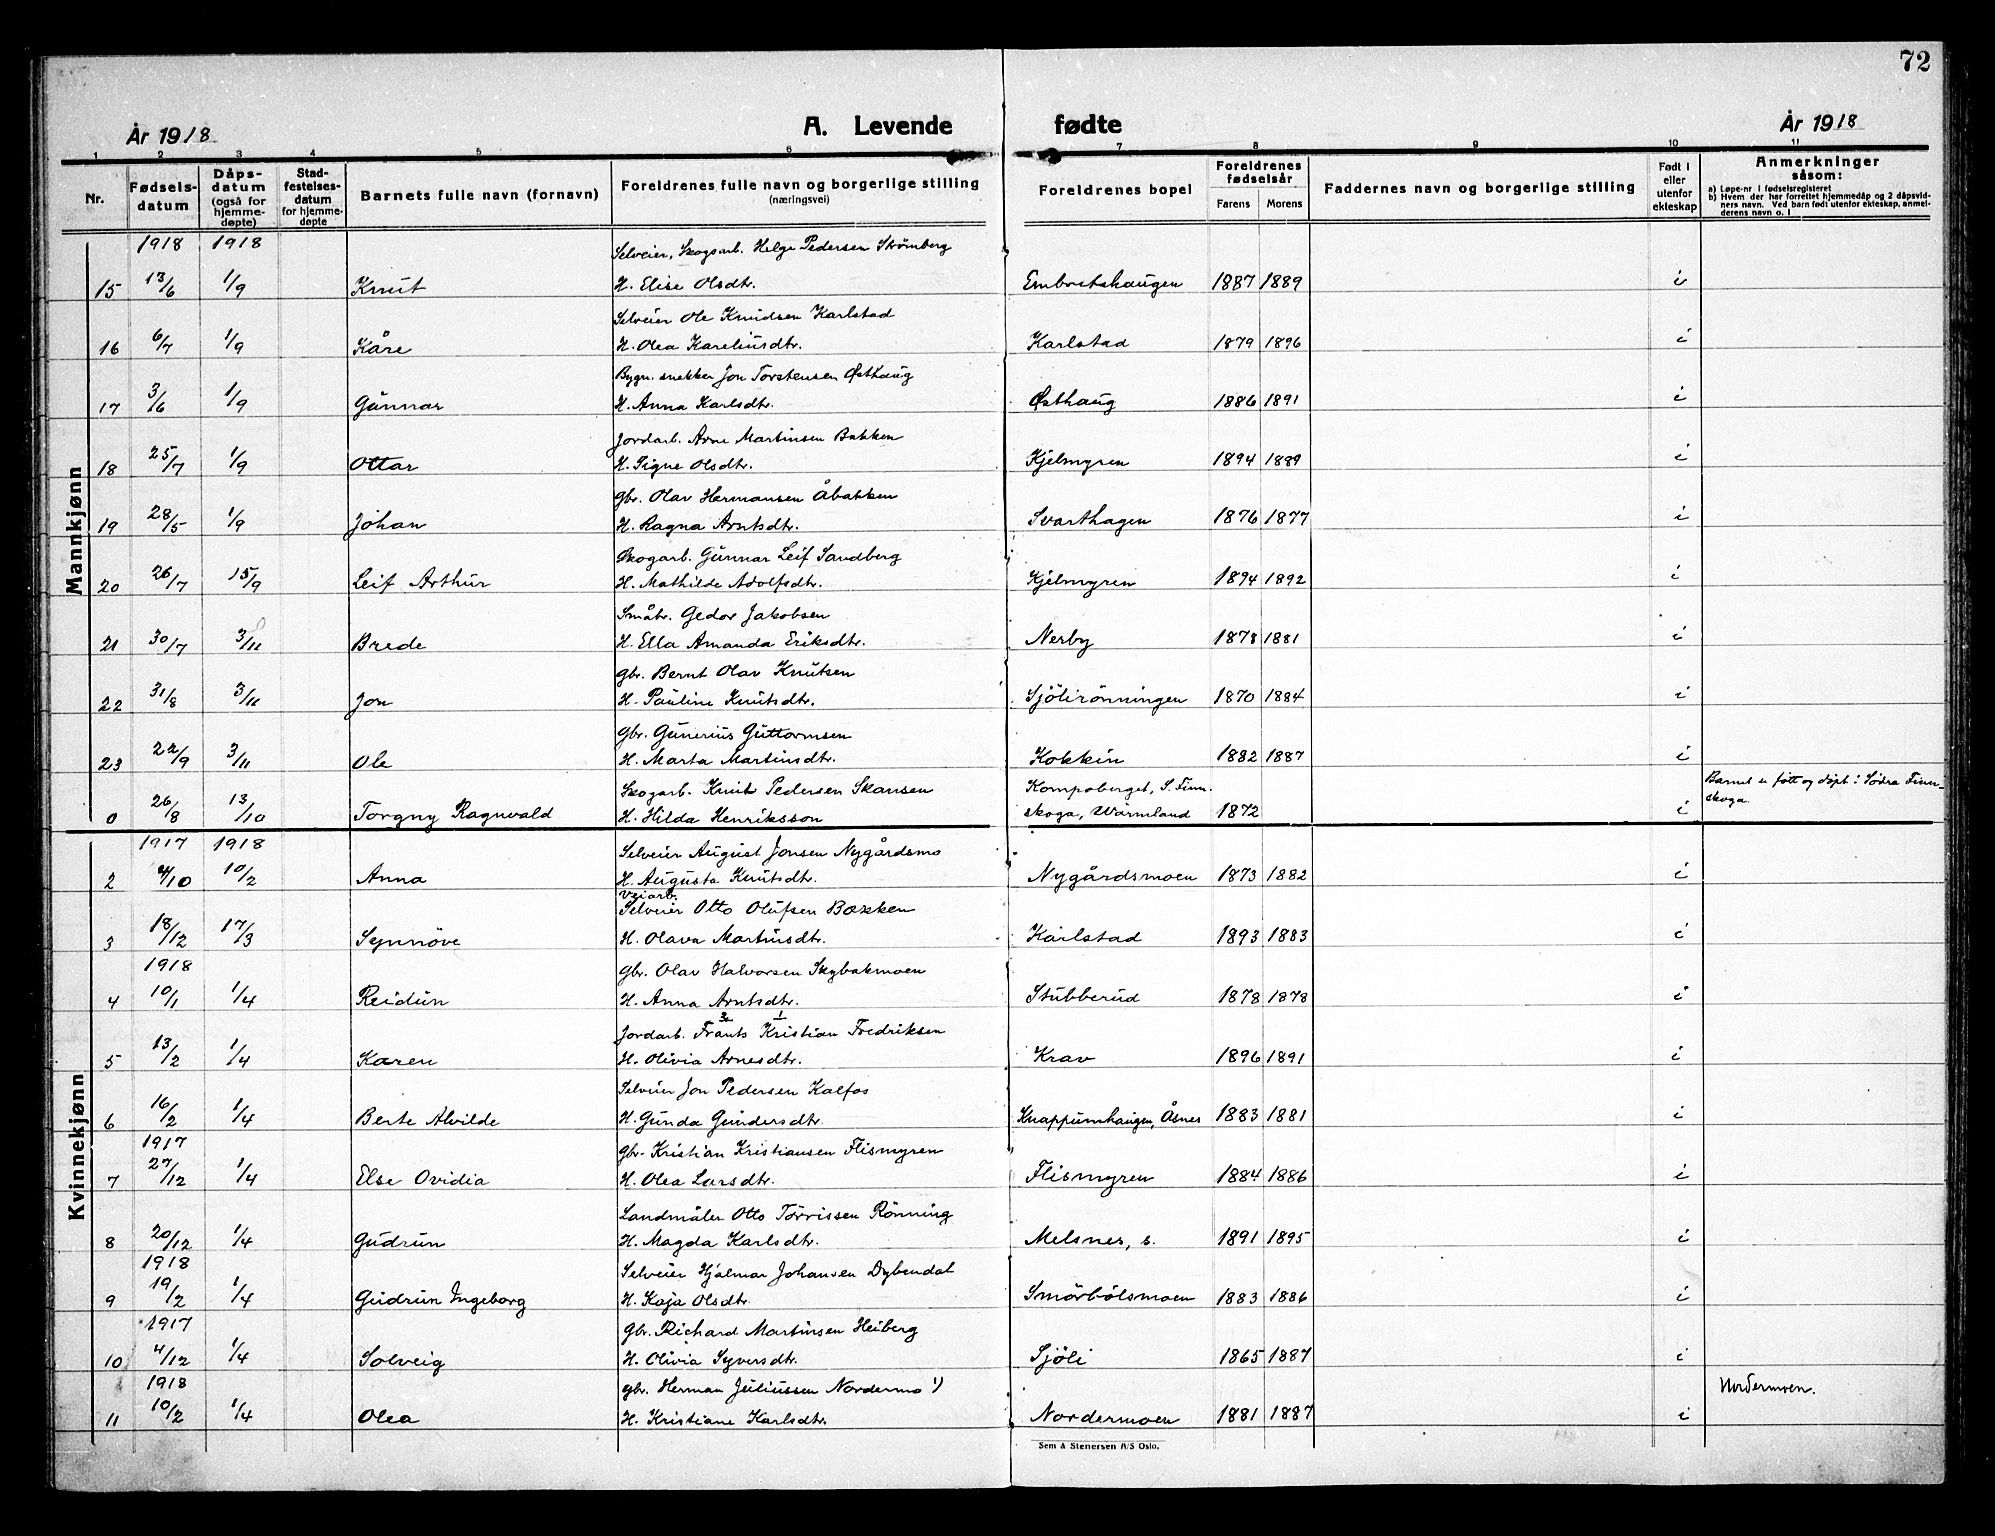 72
År 1918
A. Levende fødte
År 1918
1 2 3 4 5 6 7 8 9 10 11
Nr.
Fødselsdatum
Dåpsdatum (også for hjemmedøpte)
Stadfestelsesdatum for hjemmedøpte
Barnets fulle navn (fornavn)
Foreldrenes fulle navn og borgerlige stilling (næringsvei)
Foreldrenes bopel
Foreldrenes fødselsår
Farens Morens
Faddernes navn og borgerlige stilling
Født i eller utenfor ekteskap
Anmerkninger såsom:
a) Løpe-nr i fødselsregisteret
b) Hvem der har forrettet hjemmedåp og 2 dåpsvidners navn. Ved barn født utenfor ekteskap, anmelderens navn o. l
Mannkjønn
1918 1918 Selveier, Skogsarb. Helge Pedersen Strömberg
15 13/6 1/9 Knut H. Elise Olsdtr. Embretshaugen 1887 1889 i
Selveier Ole Knudsen Karlstad
16 6/7 1/9 Kåre H. Olea Kareliusdtr. Karlstad 1879 1896 i
Bygn. snekker Jon Torstensen Østhaug
17 3/6 1/9 Gunnar H. Anna Karlsdtr. Østhaug 1886 1891 i
Jordarb. Arne Martinsen Bakken
18 25/7 1/9 Ottar H. Signe Olsdtr. Kjelmyren 1894 1889 i
gbr. Olav Hermansen Åbakken
19 28/5 1/9 Johan H. Ragna Arntsdtr. Svarthagen 1876 1877 i
Skogarb. Gunnar Leif Sandberg
20 26/7 15/9 Leif Arthur H. Mathilde Adolfsdtr. Kjelmyren 1894 1892 i
Småbr. Gedor Jakobsen
21 30/7 3/11 Brede H. Ella Amanda Eriksdtr. Nerby 1878 1881 i
gbr. Bernt Olav Knutsen
22 31/8 3/11 Jon H. Pauline Knutsdtr. Sjölirönningen 1870 1884 i
gbr. Gunerius Guttormsen
23 22/9 3/11 Ole H. Marta Martinsdtr. Kokkin 1882 1887 i
Skogarb. Knut Pedersen Skansen Kompoberget, S. Finn- Barnet er født og døpt i Södra Finn-
0 26/8 13/10 Torgny Ragnvald H. Hilda Henriksson skoga, Wärmland 1872 i skoga.
Kvinnekjønn
1917 1918 Selveier August Jonsen Nygårdsmo
2 4/10 10/2 Anna H. Augusta Knutsdtr. Nygårdsmoen 1873 1882 i
Veiarb.
Selveier Otto Olufsen Bakken
3 18/12 17/3 Synnöve H. Olava Martinsdtr. Karlstad 1893 1883 i
1918 gbr. Olav Halvorsen Skybakmoen
4 10/1 1/4 Reidun H. Anna Arntsdtr. Stubberud 1878 1878 i
2 1
Jordarb. Frants Kristian Fredriksen
5 13/2 1/4 Karen H. Olivia Arnesdtr. Krav 1896 1891 i
Selveier Jon Pedersen Kalfos
6 16/2 1/4 Berte Alvilde H. Gunda Gundersdtr. Knappumhaugen, Åsnes 1883 1881 i
1917 gbr. Kristian Kristiansen Flismyren
7 27/12 1/4 Else Ovidia H. Olea Larsdtr. Flismyren 1884 1886 i
Landmåler Otto Torrissen Rönning
8 20/12 1/4 Gudrun H. Magda Karlsdtr. Melsnes, s. 1891 1895 i
1918 Selveier Hjalmar Johansen Dybendal
9 19/2 1/4 Gudrun Ingeborg H. Kaja Olsdtr. Smörbölsmoen 1883 1886 i
1917 gbr. Richard Martinsen Heiberg
10 4/12 1/4 Solveig H. Olivia Syversdtr. Sjöli 1865 1887 i
1918 gbr. Herman Juliussen Nordermo 1) Nordermoen.
11 10/2 1/4 Olea H. Kristiane Karlsdtr. Nordermoen 1881 1887 i
Sem & Stenersen A/S Oslo.